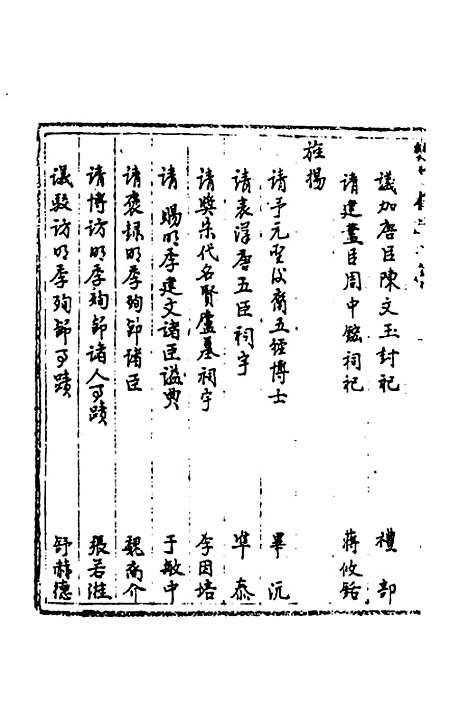 議加唐臣陳文玉封祀 禮部
請建藎臣周中鋐祠祀 蔣攸銛
旌揚
請予元聖後裔五經博士 畢沅
請表漢唐五臣祠宇 準泰
請奬宋代名賢廬墓祠宇 李因培
請賜明季建文諸臣諡典 于敏中
請褒錄明季殉節諸臣 魏裔介
請博訪明季殉節諸人事蹟 張若溎
議駁訪明季殉節事蹟 舒赫德